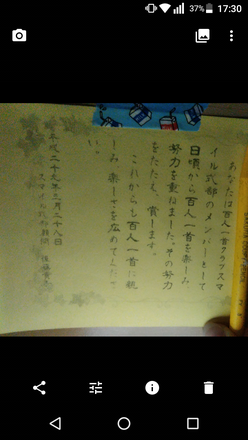 37% 17:30
あなたは百人一首クラブスマ
イル式部のメンバーとして
日頃から百人一首を楽しみ
努力を重ねました。その努力
をたたえ、賞します。
これからも百人一首に親
しみ、楽しさを広めてくださ
い。
平成二十九年三月二十八日
スマイル式部顧問